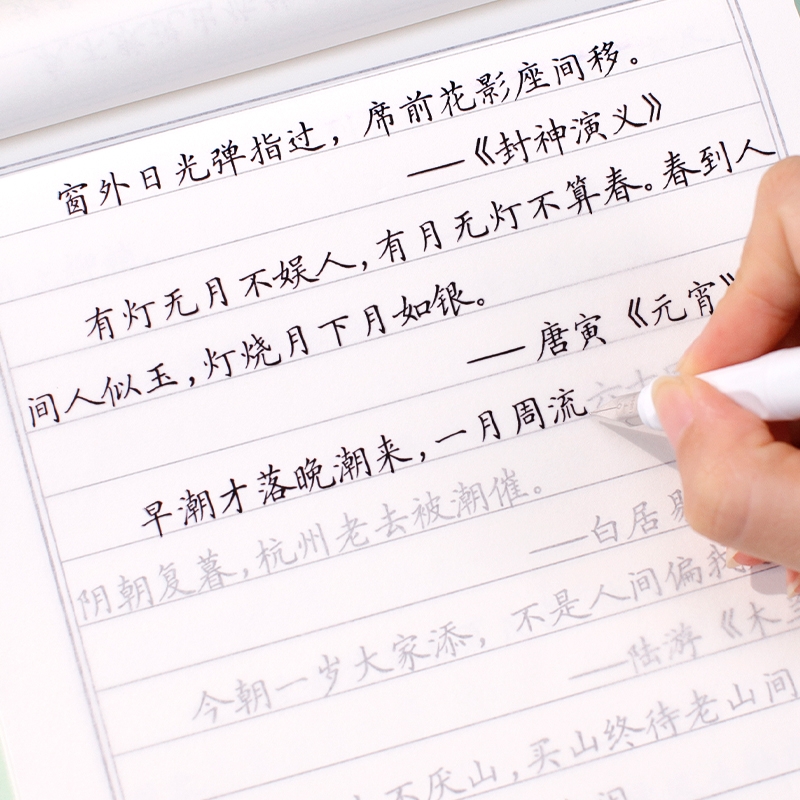 窗外日光弹指过，席前花影座间移。
——《封神演义》
有灯无月不娱人，有月无灯不算春。春到人
间人似玉，灯烧月下月如银。
——唐寅《元宵》
早潮才落晚潮来，一月周流六十
阴朝复暮，杭州老去被潮催。
——白居易
今朝一岁大家添，不是人间偏我
——陆游《木
不厌山，买山终待老山间